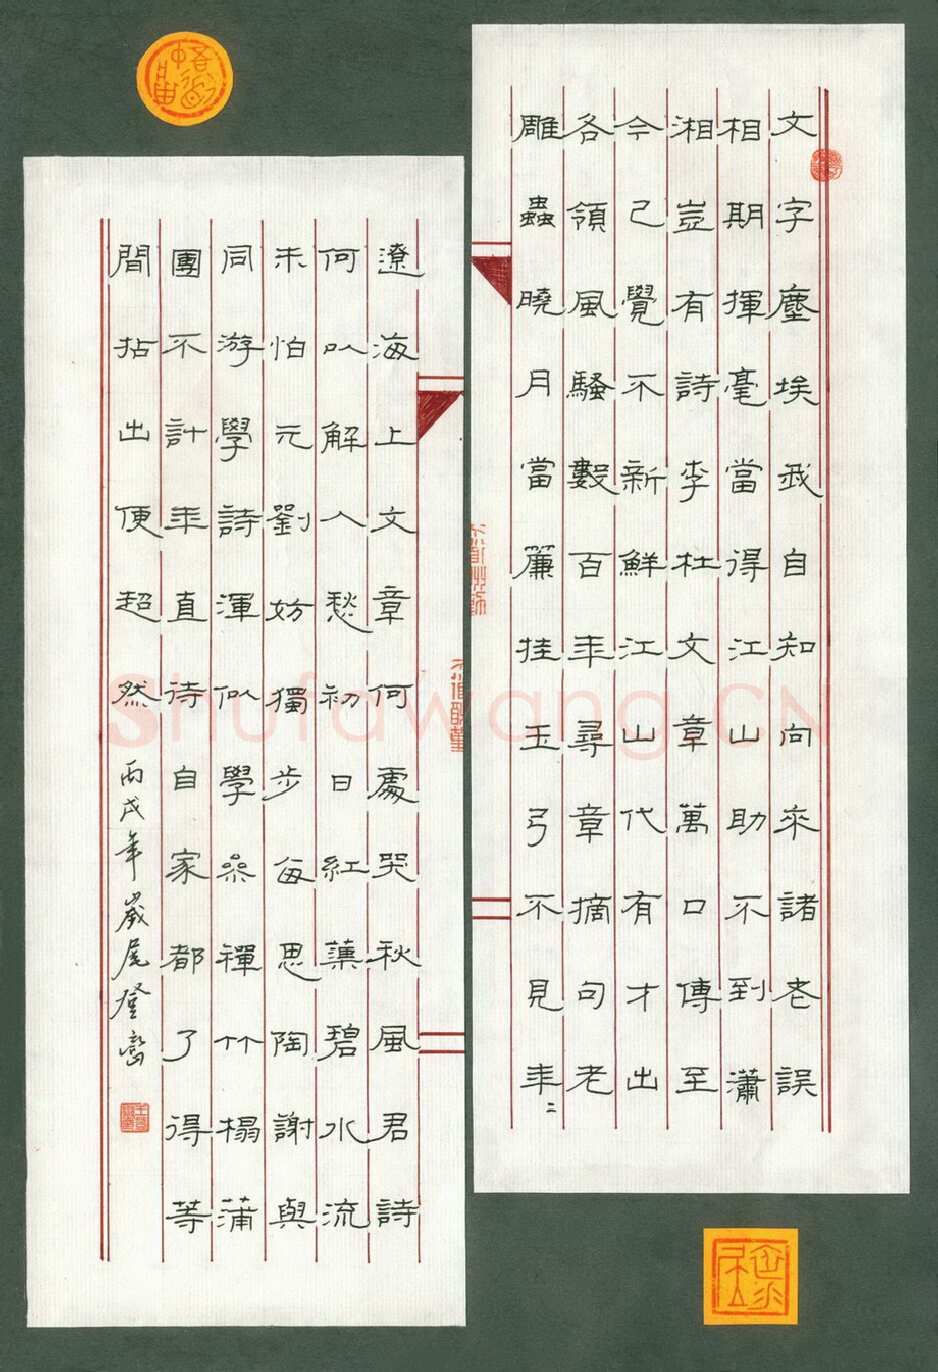 文字塵埃我自知向來諸老誤
相期揮毫當得江山助不到瀟
湘豈有詩李杜文章萬口傳至
今已覺不新鮮江山代有才出
各領風騷數百年尋章摘句老
雕蟲曉月當簾挂玉弓不見年二
遼海上文章何處哭秋風君詩
何以解人愁初日紅蕖碧水流
未怕元劉妨獨步每思陶謝與
同游學詩渾似學參禪竹榻蒲
團不計年直待自家都了得等
間拈出便超然 丙戌年歲尾
Shufawang.CN